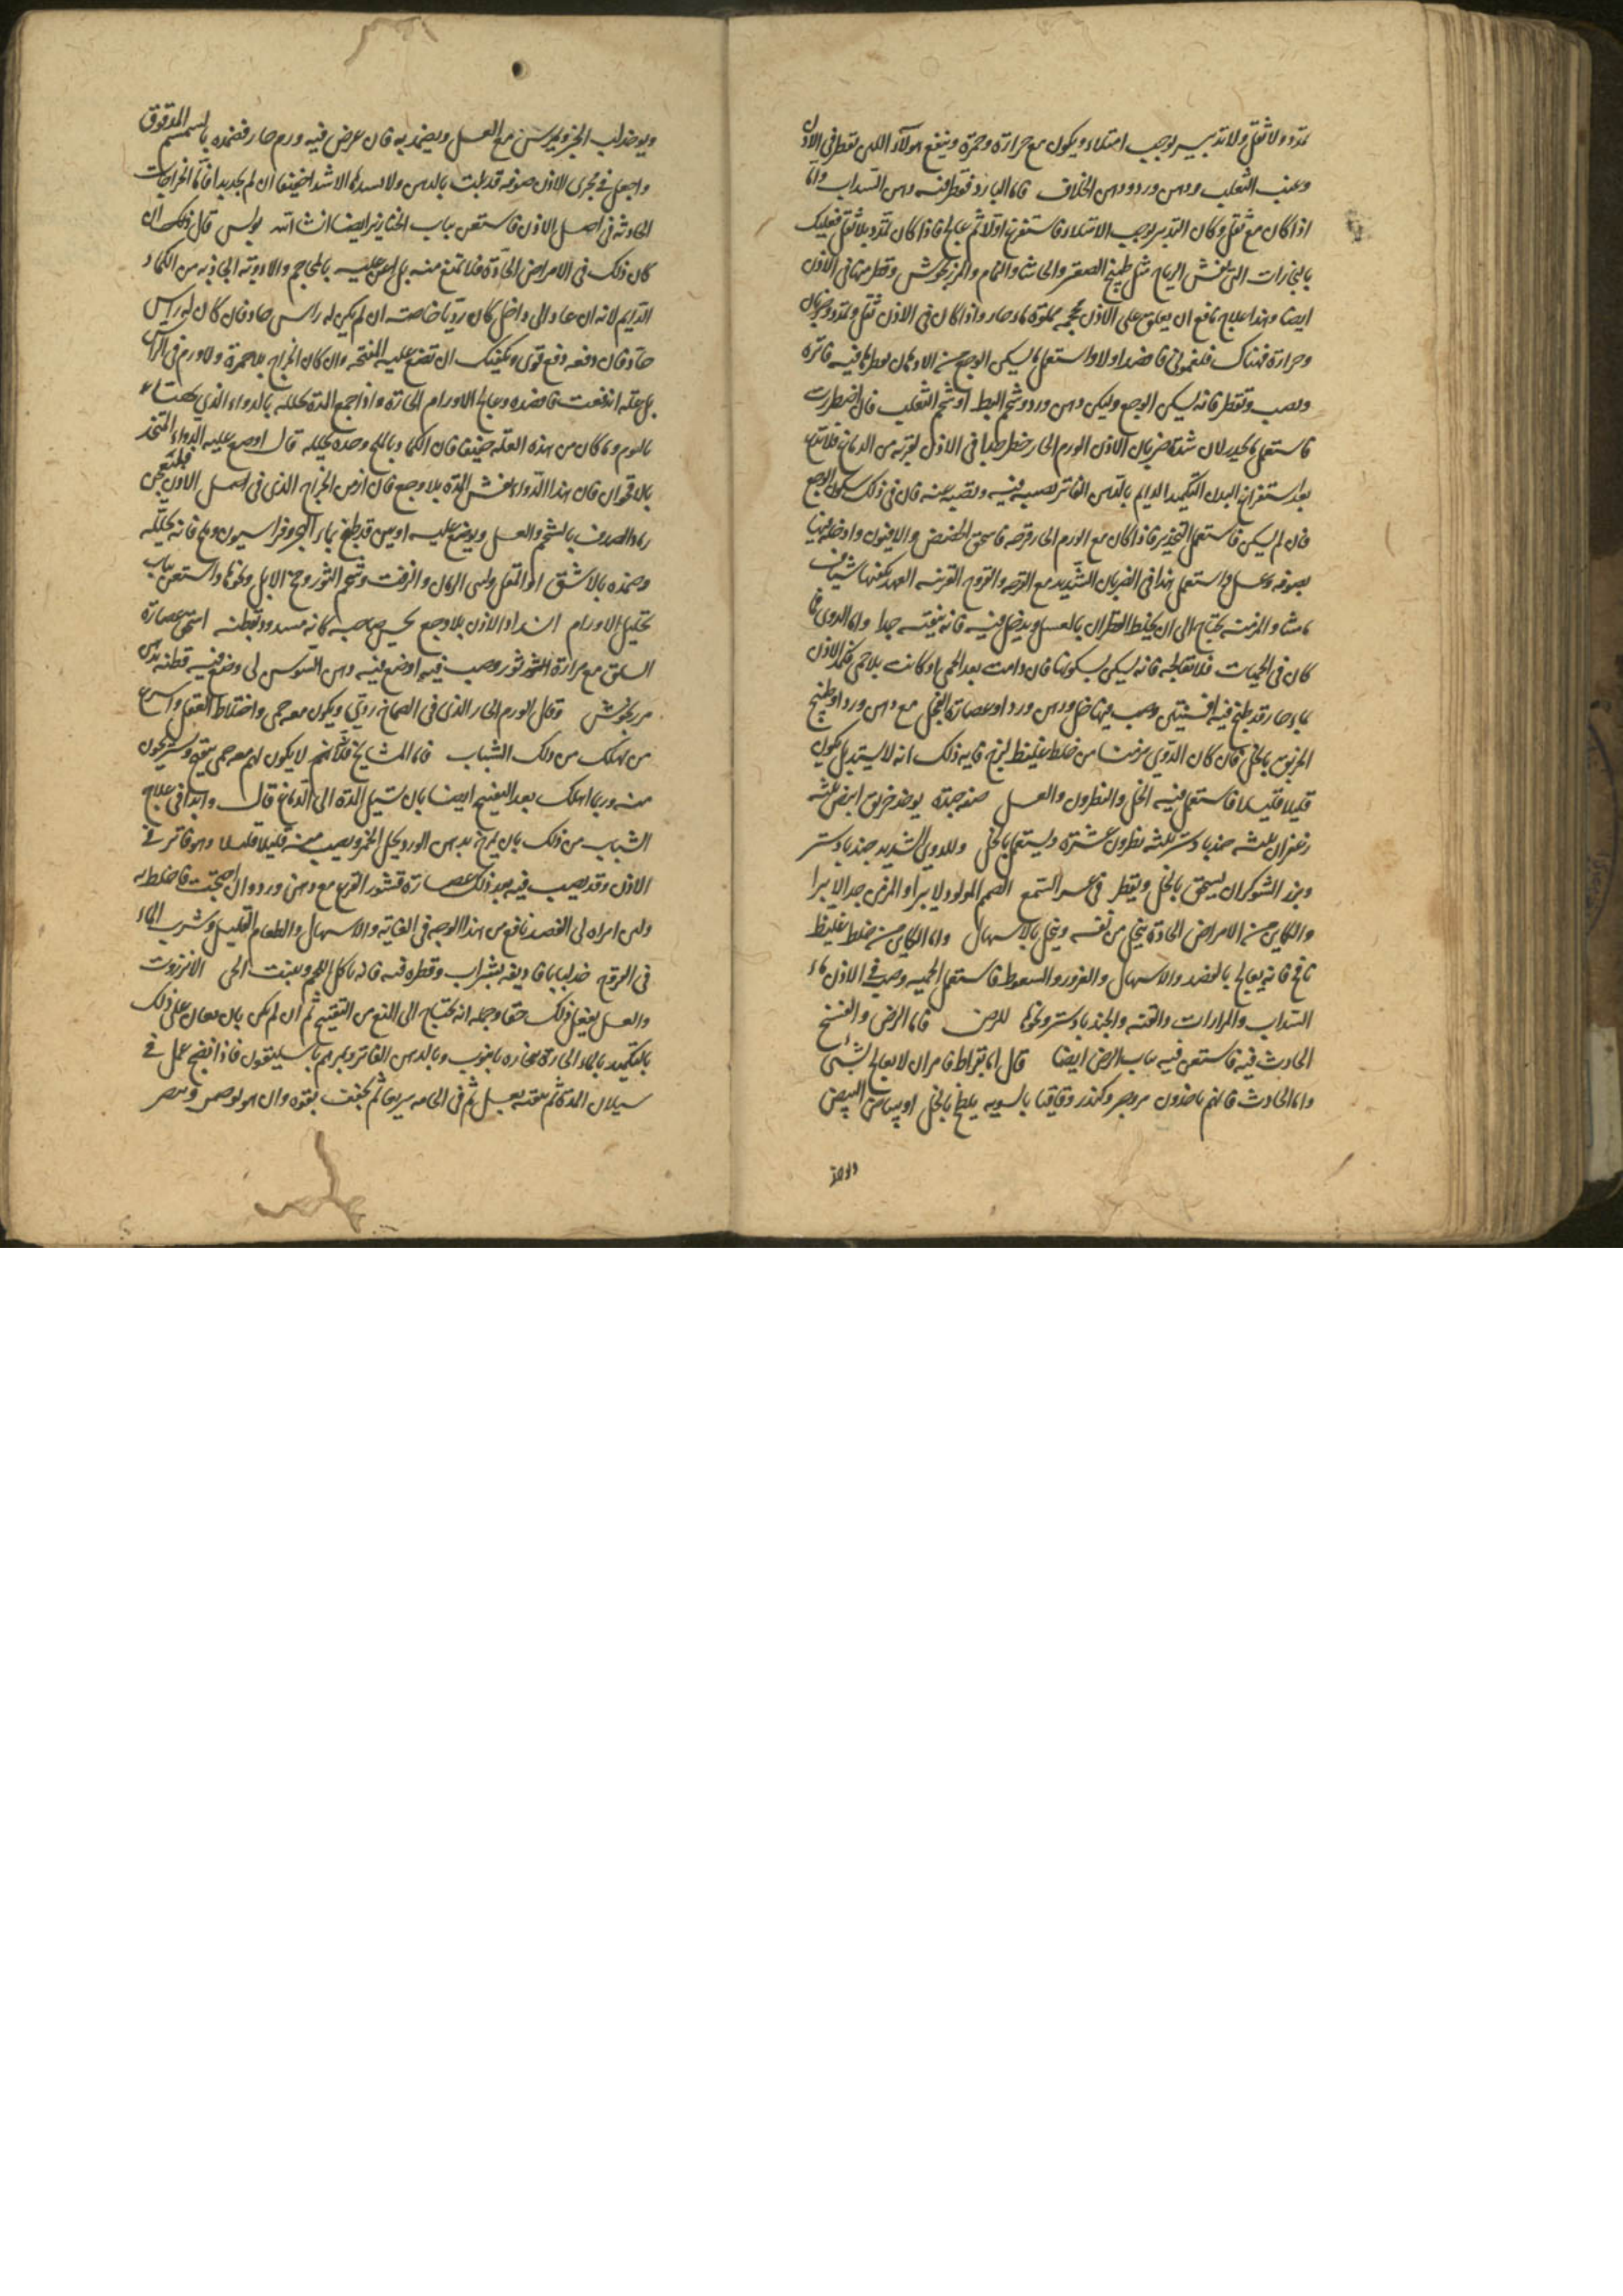 تمدد ولا ثقل ولا تدبير يوجب امتلاء ويكون مع حرارة وحمرة وينفع هولاء اللبن يقطر في الاذن
وعنب الثعلب ودهن ورد ودهن الخلاف فاما البارد فقطر فيه دهن السداب واما
اذا كان مع ثقل وكان التدبير يوجب الامتلاء فاستفرغ اولا ثم عالج فاذا كان تمدد بلا ثقل فعليك
بالبخارات التي تفش الرياح مثل طبيخ الصعتر والحاشا والنمام والمرزنجوش وقطر منها في الاذن
ايضا وهذا علاج نافع ان يعلق على الاذن محجمة مملوة ماء حار واذا كان في الاذن ثقل وتمدد وضربان
وحرارة فهناك فلغموني فافصد اولا واستعمل ما يسكن الوجع من الادهان يقطر ما فيه فاتره
وتصب وتقطر فانه يسكن الوجع وليكن دهن ورد وشحم البط او شحم الثعلب فان اضطررت
فاستعمل ما يخدر لان شدة ضربان الاذن الورم الحار خطر جدا في الاذن لقربه من الدماغ فلا تدع
بعد استفراغ البدن التكميد الدايم بالدهن الفاتر تصبه فيه وتصبه عنه فان في ذلك سكون الوجع
فان لم يسكن فاستعمل التخدير فاذا كان مع الورم الحار قرحه فاسحق الحضض والافيون وادخله فيها
بصوفه وعسل واستعمل هذا في الضربان الشديد مع القرحه والقروح القريبه العهد يكفيها شياف
ماميثا والمزمنه يحتاج الى ان يخلط القطران بالعسل ويدخل فيه فانه ينقيه جدا واما الدوي فا
كان في الحميات فلا تعالجه فانه يسكن بسكونها فان دامت بعد الحمى او كانت بلا حمى فكمد الاذن
بماء حار قد طبخ فيه افسنتين وصب فيها خل ودهن ورد او عصارة الفجل مع دهن ورد او طبيخ
الخربق بالخل فان كان الدوي مزمنا من خلط غليظ لزج فايه ذلك انه لا يبتدي بل يكون
قليلا قليلا فاستعمل فيه الخل والنطرون والعسل صفه جيدة يوخذ خربق ابيض ثلثه
زعفران ثلثه جندبادستر ثلثه نطرون عشرة ويستعمل بالخل وللدوي الشديد جندبادستر
وبزر الشوكران يسحق بالخل ويقطر في عسر السمع الصمم المولود لا يبرا والمزمن جدا لا يبرا
والكاين من الامراض الحادة ينحل من نفسه وينحل بالاسهال واما الكاين من خلط غليظ
نافخ فانه يعالج بالفصد والاسهال والغرور والسعوط فاستعمل الحميه وصب في الاذن ماء
السداب والمرارات والقنه والجندبادستر ونحوها للرض فاما الرض والفسخ
الحادث فيه فاستعن فيه بباب الرض ايضا قال اما بقراط فامر ان لا يعالج بشئ
واما الحادث فانهم ياخذون مر وصبر وكندر وقاقيا بالسويه يلطخ بالخل او بياض البيض
ويوخذ لب الخبز ويمرس مع العسل ويضمد به فان عرض فيه ورم حار فضمده بالسمسم المدقوق
واجعل في مجرى الاذن صوفه قد بلت بالدهن ولا تسدها الا شدا خفيفا ان لم تجد بدا فاما الخراجات
الحادثه في اصل الاذن فاستعن بباب الخنازير ايضا ان شا الله بولس قال ذلك ان
كان ذلك في الامراض الحادة فلا تمنع منه بل اعن عليه بالمحاجم والادوية الجاذبه من الكماد
الدايم لانه ان عاد الى داخل كان رديا خاصة ان لم يكن له راس حاد فان كان له راس
حاد فان دفعه دفع قوى ويكفيك ان تضع عليه المنتجه وان كان الخراج بلا حمرة ولا ورم في الراس
بل علة اندفعت فافصده وعالج الاورام الحارة واذا جمع المدة تحلله بالدواء الذي يهيا
بالثوم وما كان من هذه العلة ضيقا فان الكماد بالملح وحده يحلله قال اوضع عليه الدواء المتخذ
بالاقحوان فان هذا الدواء يفش المدة بلا وجع فان ازمن الخراج الذي في اصل الاذن فليعجن
رماد الصدف بالشحم والعسل ويوضع عليه او تين قد طبخ بماء البحر وفراسيون وملح فانه يحلله
وضمده بالاشق او المقل ولبن الرمان والزفت وشحم الثور ومخ الابل ونحوها واستعن بباب
تحليل الاورام انسداد الاذن بلا وجع يحس صاحبه كانه مسدود بقطنه اسق عصارة
السلق مع مرارة الثور وصب فيه اوضع فيه دهن السوسن لى وضع فيه قطنه بدهن
مرزنجوش وقال الورم الحار الذي في الصماخ ردي ويكون معه حمى واختلاط العقل واسرع
من يهلك من ذلك الشباب فاما المشايخ فلانهم لا يكون لهم معه حمى يتقيح ويستريحون
منه وربما اهلك بعد التقيح ايضا بان تسيل المدة الى الدماغ قال وابدا في علاج
الشباب من ذلك بان يمزج دهن الورد بخل الخمر ويصب منه قليلا قليلا وهو فاتر في
الاذن وقد يصب فيه بعد ذلك عصارة قشور القرع مع دهن ورد وان احتجت فاخلط به
ولبن امراه لى الفصد نافع من هذا الوجه في الغايه والاسهال والطعام القليل وشرب الماء
في القروح خذ لبابا فاديفه بشراب وقطره فيه فانه ياكل اللحم وينبت الحى الانزروت
والعسل يفعل ذلك حقا وجمله انه يحتاج الى النوعين التقيح ثم ان لم يكن بان يعان على ذلك
بالتكميد بالماء الحارة بخاره بانبوب وبالدهن الفاتر وبمرهم باسليقون فاذا انضج عمل في
سيلان المدة ثم ينقيه بعسل ثم في الحامه سريعا ثم يجفف بقوه وان